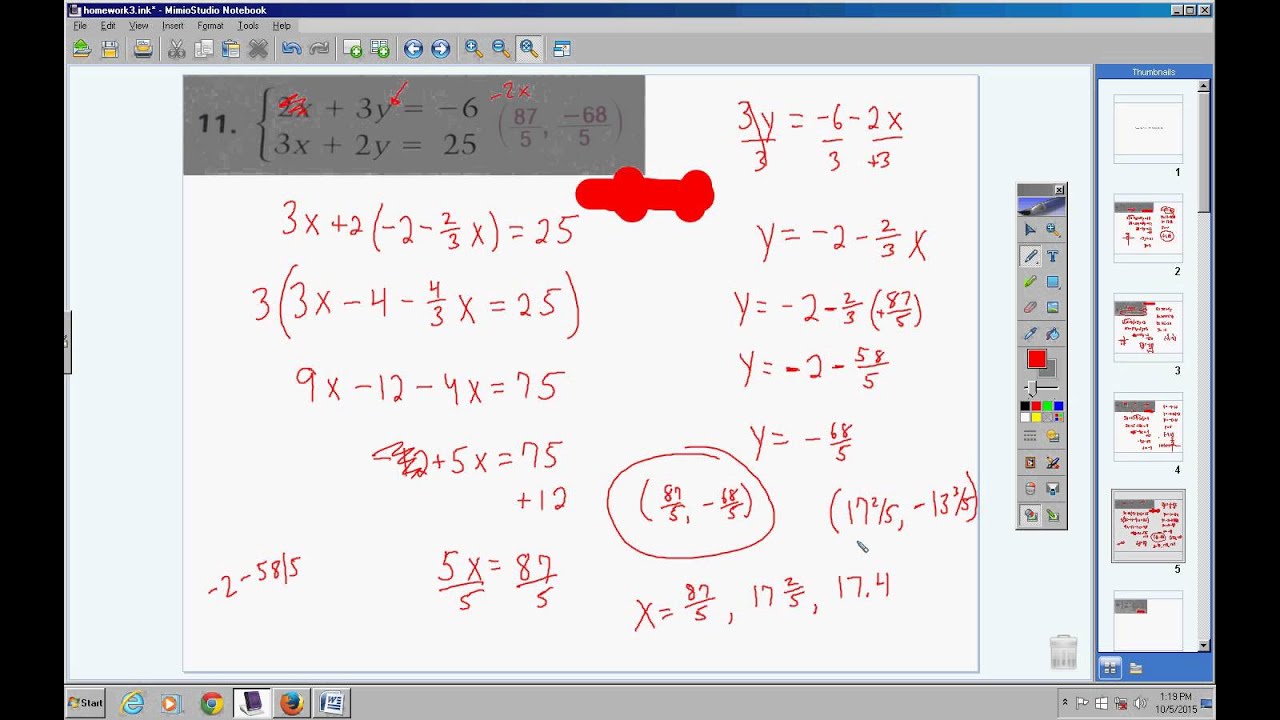 homework3.ink* - MimioStudio Notebook
File Edit View Insert Format Tools Help
Thumbnails
11. { 2x + 3y = -6
3x + 2y = 25
(87/5, -68/5)
-2x
3y/3 = -6/3 - 2x/+3
3x+2(-2-2/3x)=25
y= -2-2/3x
3(3x-4-4/3x=25)
y= -2-2/3(+87/5)
9x-12-4x=75
y= -2-58/5
+5x=75
+12
y= -68/5
(87/5, -68/5)
(17 2/5, -13 3/5)
-2-58/5
5x/5=87/5
x=87/5, 17 2/5, 17.4
1
2
3
4
5
Start
1:19 PM
10/5/2015